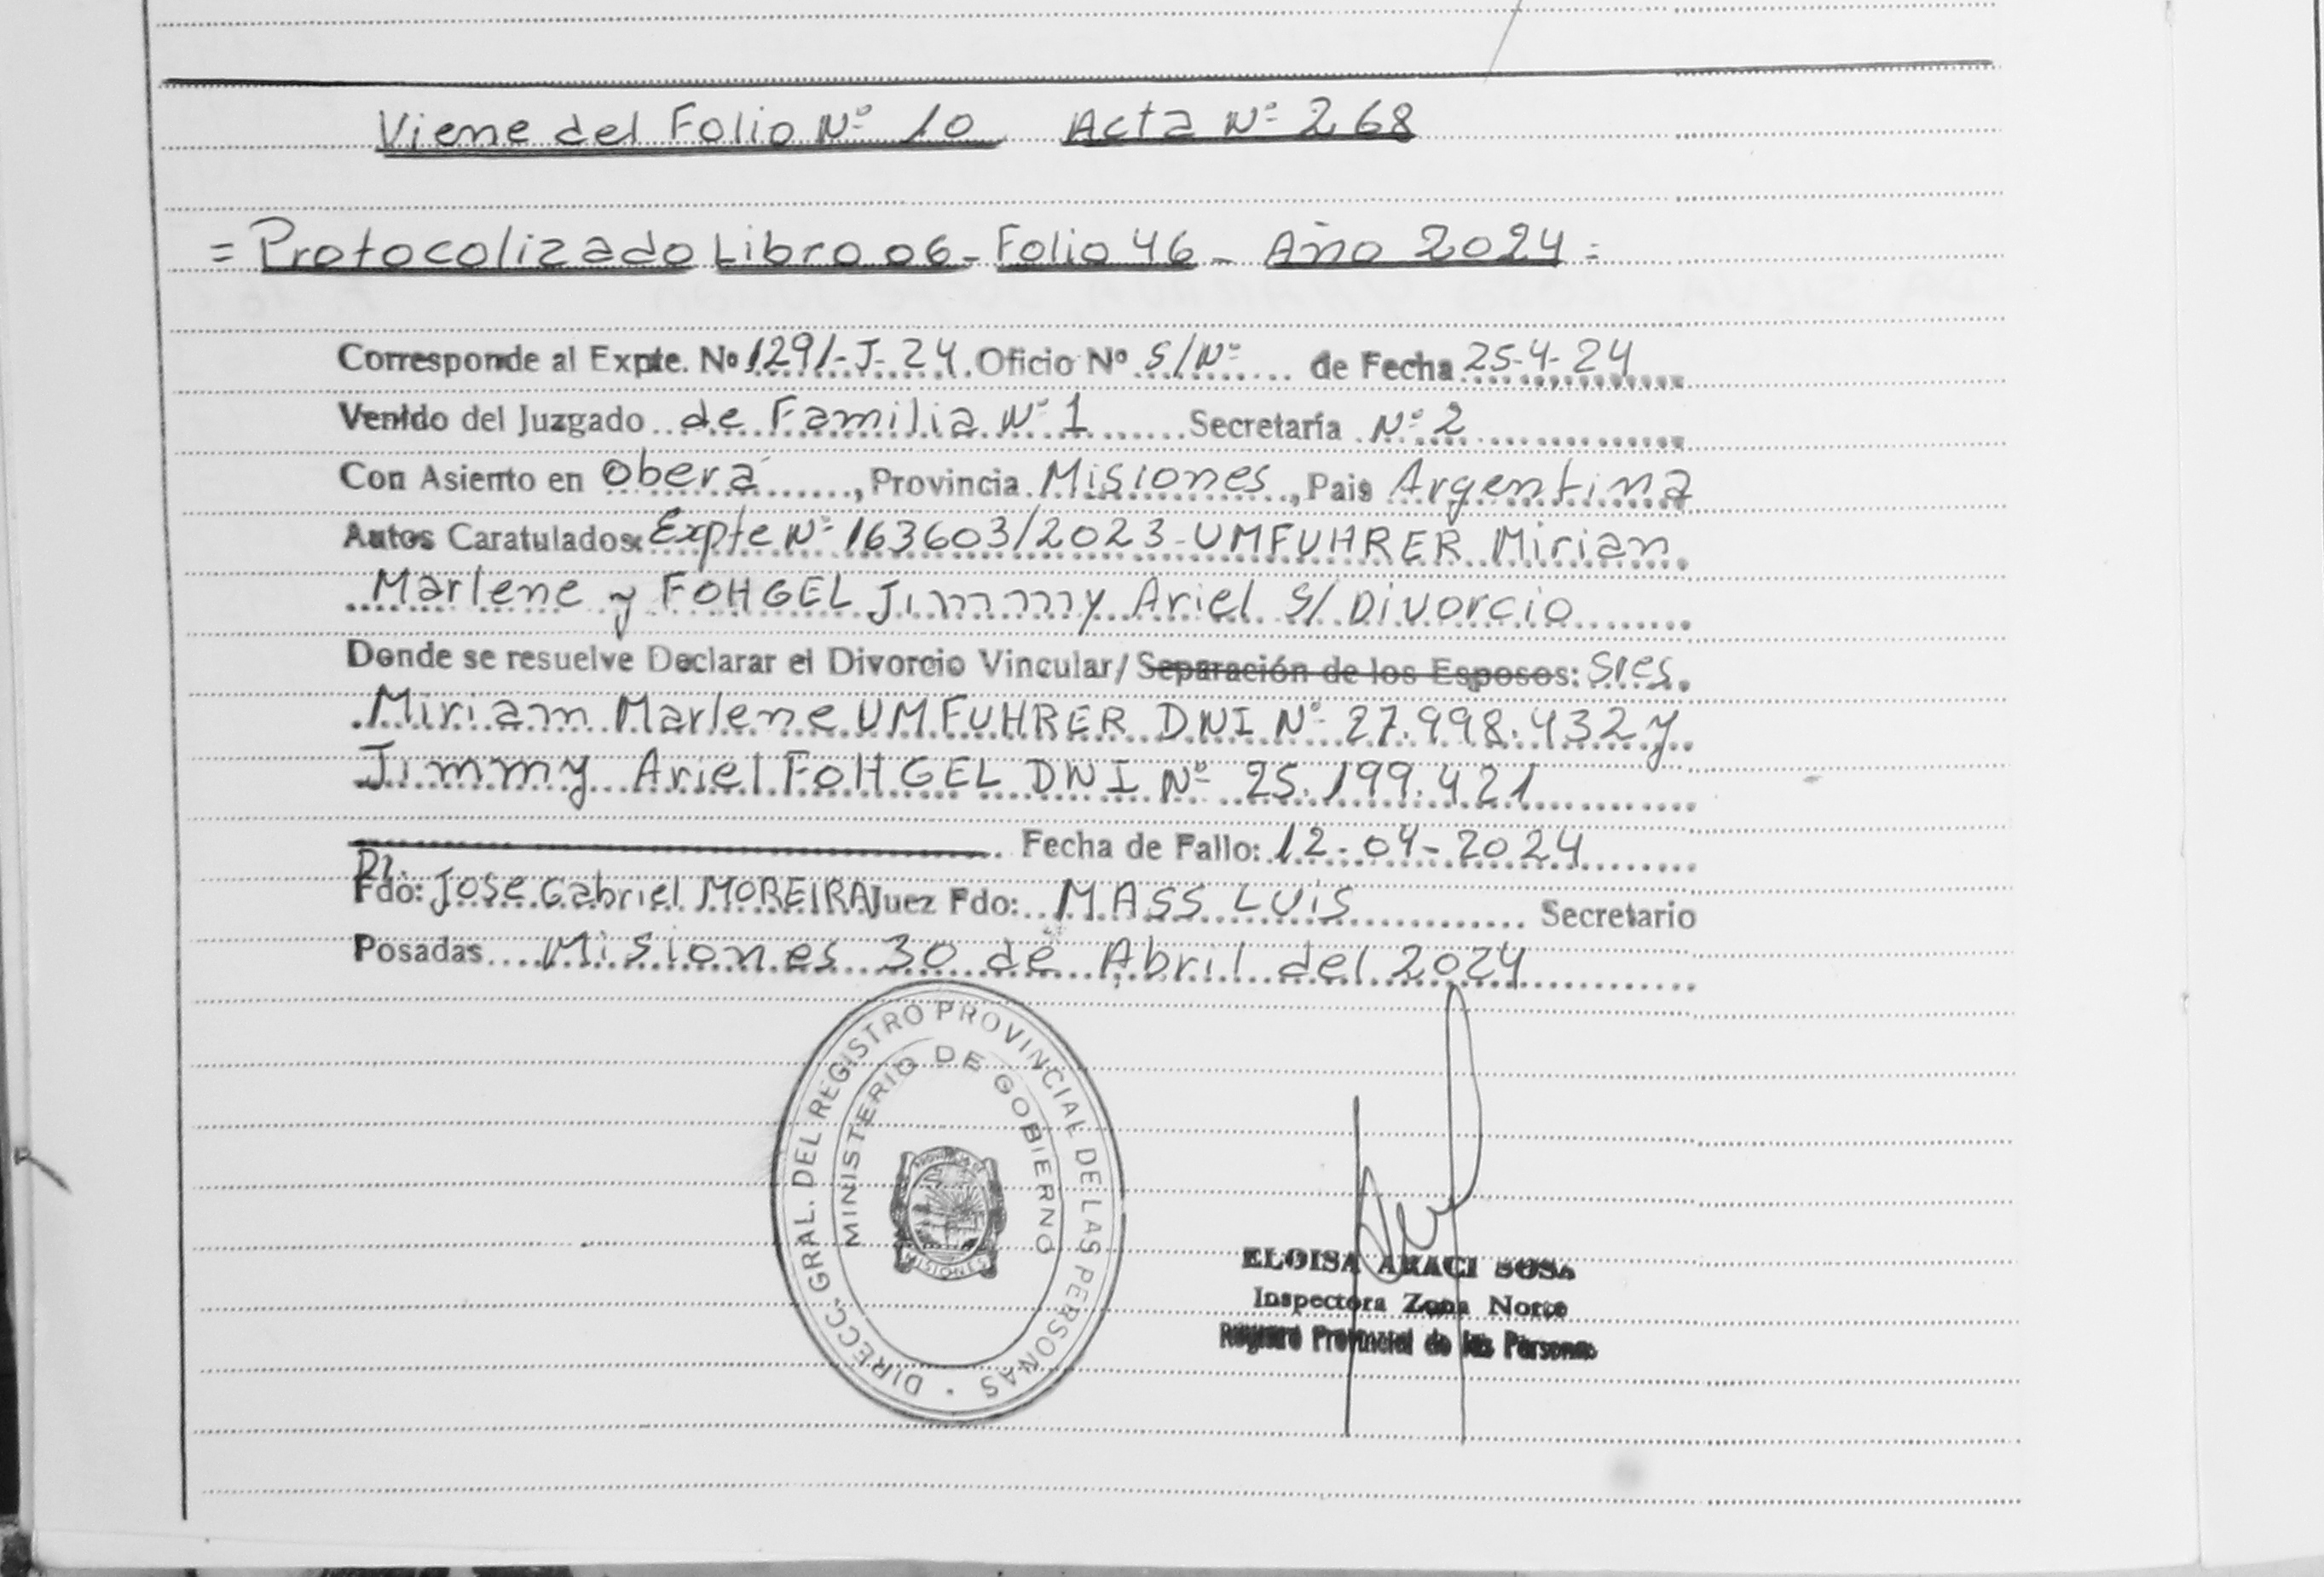 Viene del Folio Nº 10 Acta Nº 268
= Protocolizado Libro 06 - Folio 46 - Año 2024 =
Corresponde al Expte. Nº 1291-J-24. Oficio Nº S/Nº de Fecha 25-4-24
Venido del Juzgado de Familia Nº 1 Secretaría Nº 2
Con Asiento en Oberá, Provincia Misiones, Pais Argentina
Autos Caratulados: Expte Nº 163603/2023 - UMFUHRER Mirian
Marlene y FOHGEL Jimmy Ariel S/ Divorcio
Donde se resuelve Declarar el Divorcio Vincular/ Separación de los Esposos: Sres.
Miriam Marlene UMFUHRER DNI Nº 27.998.432 y
Jimmy Ariel FOHGEL DNI Nº 25.199.421
Fecha de Fallo: 12-04-2024
Dr.
Fdo: Jose Gabriel MOREIRA Juez Fdo: MASS LUIS Secretario
Posadas Misiones 30 de Abril del 2024
DIRECC. GRAL. DEL REGISTRO PROVINCIAL DE LAS PERSONAS
MINISTERIO DE GOBIERNO
MISIONES
ELOISA ARACI SOSA
Inspectora Zona Norte
Registro Provincial de las Personas